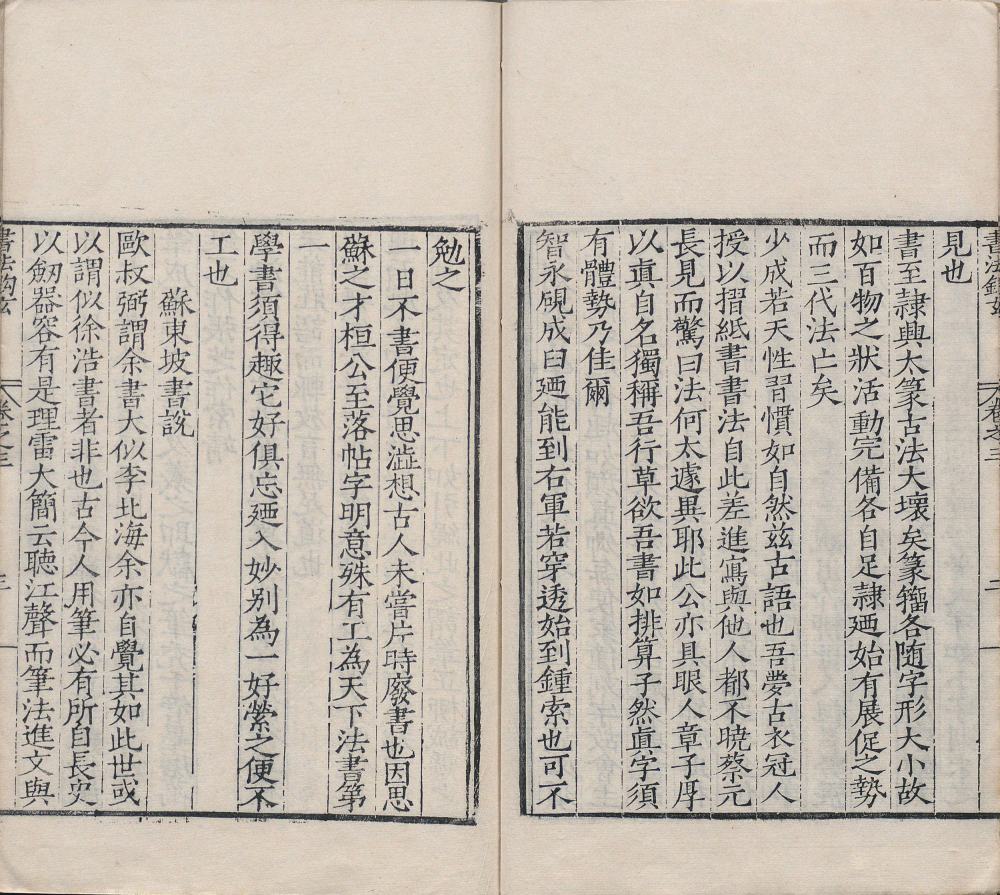 書法鉤玄 卷之三 二
見也
書至隷興大篆古法大壞矣篆籀各随字形大小故
如百物之狀活動完備各自足隷廼始有展促之勢
而三代法亡矣
少成若天性習慣如自然兹古語也吾夢古衣冠人
授以摺紙書書法自此差進寫與他人都不曉蔡元
長見而驚曰法何太遽異耶此公亦具眼人章子厚
以眞自名獨稱吾行草欲吾書如排算子然眞字須
有體勢乃佳爾
智永硯成臼廼能到右軍若穿透始到鍾索也可不
勉之
一日不書便覺思澁想古人未嘗片時廢書也因思
蘇之才桓公至落帖字明意殊有工為天下法書第
一
學書須得趣它好俱忘廼入妙别為一好縈之便不
工也
蘇東坡書説
歐叔弼謂余書大似李北海余亦自覺其如此世或
以謂似徐浩書者非也古今人用筆必有所自長史
以劒器容有是理雷大簡云聽江聲而筆法進文與
書法鉤玄 卷之三 三